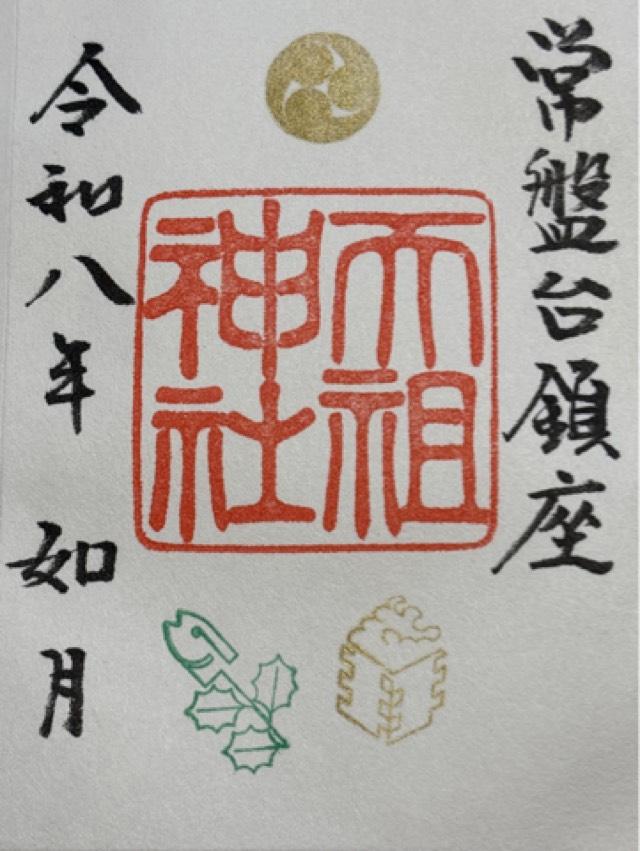 常盤台鎮座
天祖
神社
令和八年 如月